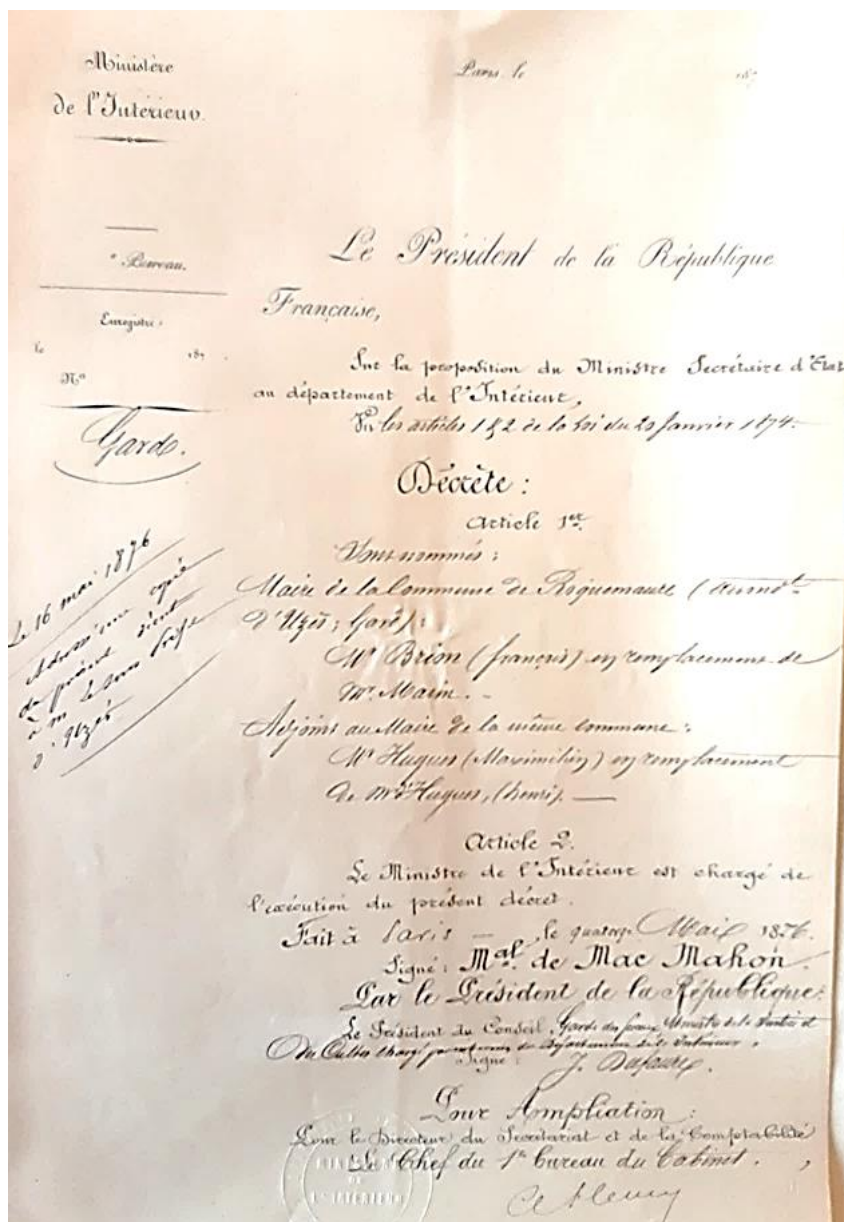 Ministère
de l'Intérieur.
Paris, le 187
e Bureau.
Enregistré:
le 187 .
No
Gard.
Le 16 mai 1876
Adressé une copie
du présent décret
à M. le Sous Préfet
d'Uzès.
Le Président de la République
Française,
Sur la proposition du Ministre Secrétaire d'Etat
au département de l'Intérieur,
Vu les articles 1 & 2 de la loi du 20 Janvier 1874.
Décrète :
Article 1er.
Sont nommés :
Maire de la Commune de Roquemaure (arrondt
d'Uzès ; Gard) :
Mr Brim (françois) en remplacement de
Mr. Marin. -
Adjoints au Maire de la même commune :
Mr Hugues (Maximilien) en remplacement
de Mr Hugues, (henri). —
Article 2.
Le Ministre de l'Intérieur est chargé de
l'exécution du présent décret.
Fait à Paris — , le quatorze Mai 1876.
Signé : Mal. de Mac Mahon.
Par le Président de la République :
Le Président du Conseil, Garde des Sceaux Ministre de la Justice et
des Cultes chargé du département de l'Intérieur,
Signé : J. Dufaure.
Pour Ampliation :
Pour le Directeur du Secrétariat et de la Comptabilité
Le Chef du 1er bureau du Cabinet.
MINISTÈRE
DE
L'INTERIEUR